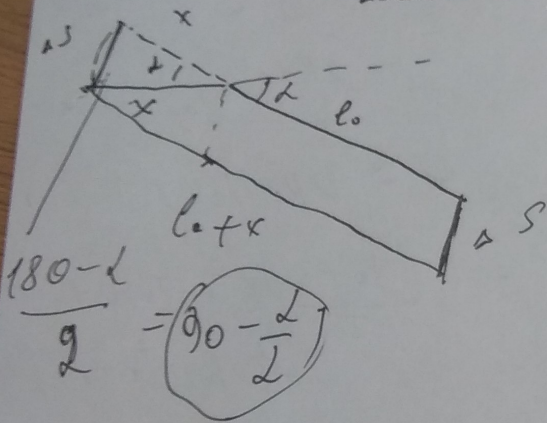 x
ΔS
α
α
x
l₀
l₀ + x
ΔS
180 - α
2
= 90 - α/2